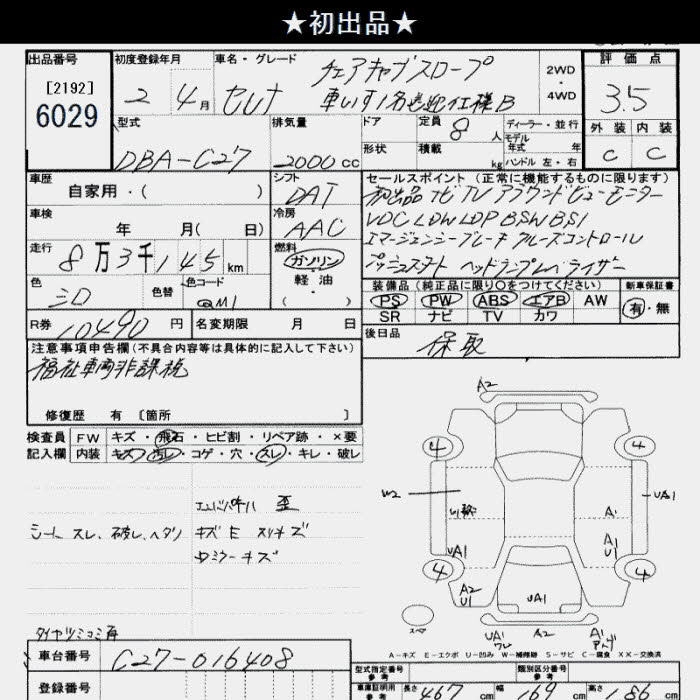 ★初出品★
出品番号 初度登録年月 車名・グレード 評価点
[2192]
6029
2 4月 セレナ チェアキャブスロープ
車いす1名送迎仕様B
2WD
4WD
3.5
外装 内装
C C
型式 排気量 ドア 定員 8人 ディーラー・並行
モデル年式 年
DBA-C27 2000cc 形状 積載 kg ハンドル 左・右
車歴 自家用・( )
シフト DAT
セールスポイント (正常に機能するものに限ります)
初出品 ナビ TV アラウンドビューモニター
VDC LDW LDP BSW BSI
エマージェンシーブレーキ クルーズコントロール
プッシュスタート ヘッドランプレベライザー
車検 年 月( 日)
冷房 AAC
走行 8万3千145km
燃料 ガソリン・軽油・( )
色 シロ 色替 色コード QM1
装備品 (純正品に限り○をつけてください) 新車保証書
PS PW ABS エアB AW 有・無
SR ナビ TV カワ
R券 10490円 名変期限 月 日
後日品 保取
注意事項申告欄 (不具合内容等は具体的に記入して下さい)
福祉車両非課税
修復歴 有 [箇所 ]
検査員 FW キズ・飛石・ヒビ割・リペア跡・×要
記入欄 内装 キズ・汚レ・コゲ・穴・スレ・キレ・破レ
シート スレ、破レ、ヘタリ
歪
キズ E スリキズ
ミラーキズ
A2
4 4
W2 UA1
A1
UA1 A1
U1
4 4
A2
U1 UA1
UA1
ワレ A2 A1
スペア
A-キズ E-エクボ U-凹み W-補修跡 S-サビ C-腐食 XX-交換済
車台番号 C27-016408
登録番号
型式指定番号 参考 類別区分番号 参考
車庫証明用 参考 長さ 467cm 幅 169cm 高さ 186cm